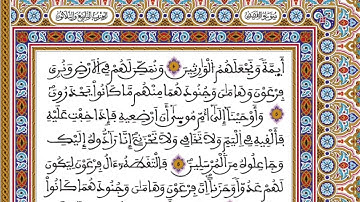 سورة القصص
أَيِمَّةً وَنَجْعَلَهُمُ الْوَارِثِينَ وَنُمَكِّنَ لَهُمْ فِي الْأَرْضِ وَنُرِيَ
فِرْعَوْنَ وَهَامَانَ وَجُنُودَهُمَا مِنْهُم مَّا كَانُوا يَحْذَرُونَ
وَأَوْحَيْنَا إِلَىٰ أُمِّ مُوسَىٰ أَنْ أَرْضِعِيهِ فَإِذَا خِفْتِ عَلَيْهِ
فَأَلْقِيهِ فِي الْيَمِّ وَلَا تَخَافِي وَلَا تَحْزَنِي إِنَّا رَادُّوهُ إِلَيْكِ
وَجَاعِلُوهُ مِنَ الْمُرْسَلِينَ فَالْتَقَطَهُ ءَالُ فِرْعَوْنَ لِيَكُونَ
لَهُمْ عَدُوًّا وَحَزَنًا إِنَّ فِرْعَوْنَ وَهَامَانَ وَجُنُودَهُمَا كَانُوا